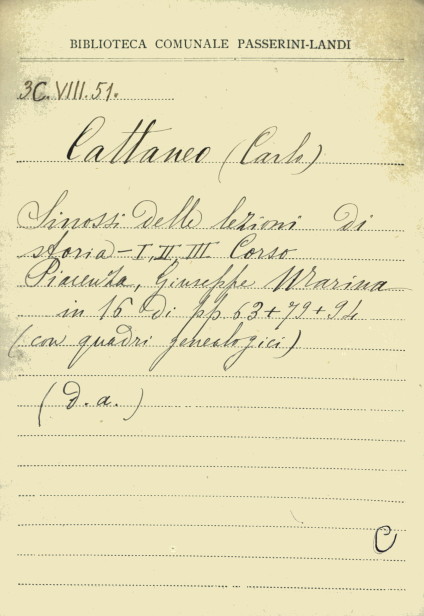 BIBLIOTECA COMUNALE PASSERINI-LANDI
3C. VIII. 51.
Cattaneo (Carlo)
Sinossi delle lezioni di
storia - I, II, III Corso
Piacenza, Giuseppe Marina
in 16 di pp. 63 + 79 + 94
(con quadri genealogici)
(D. a.)
C